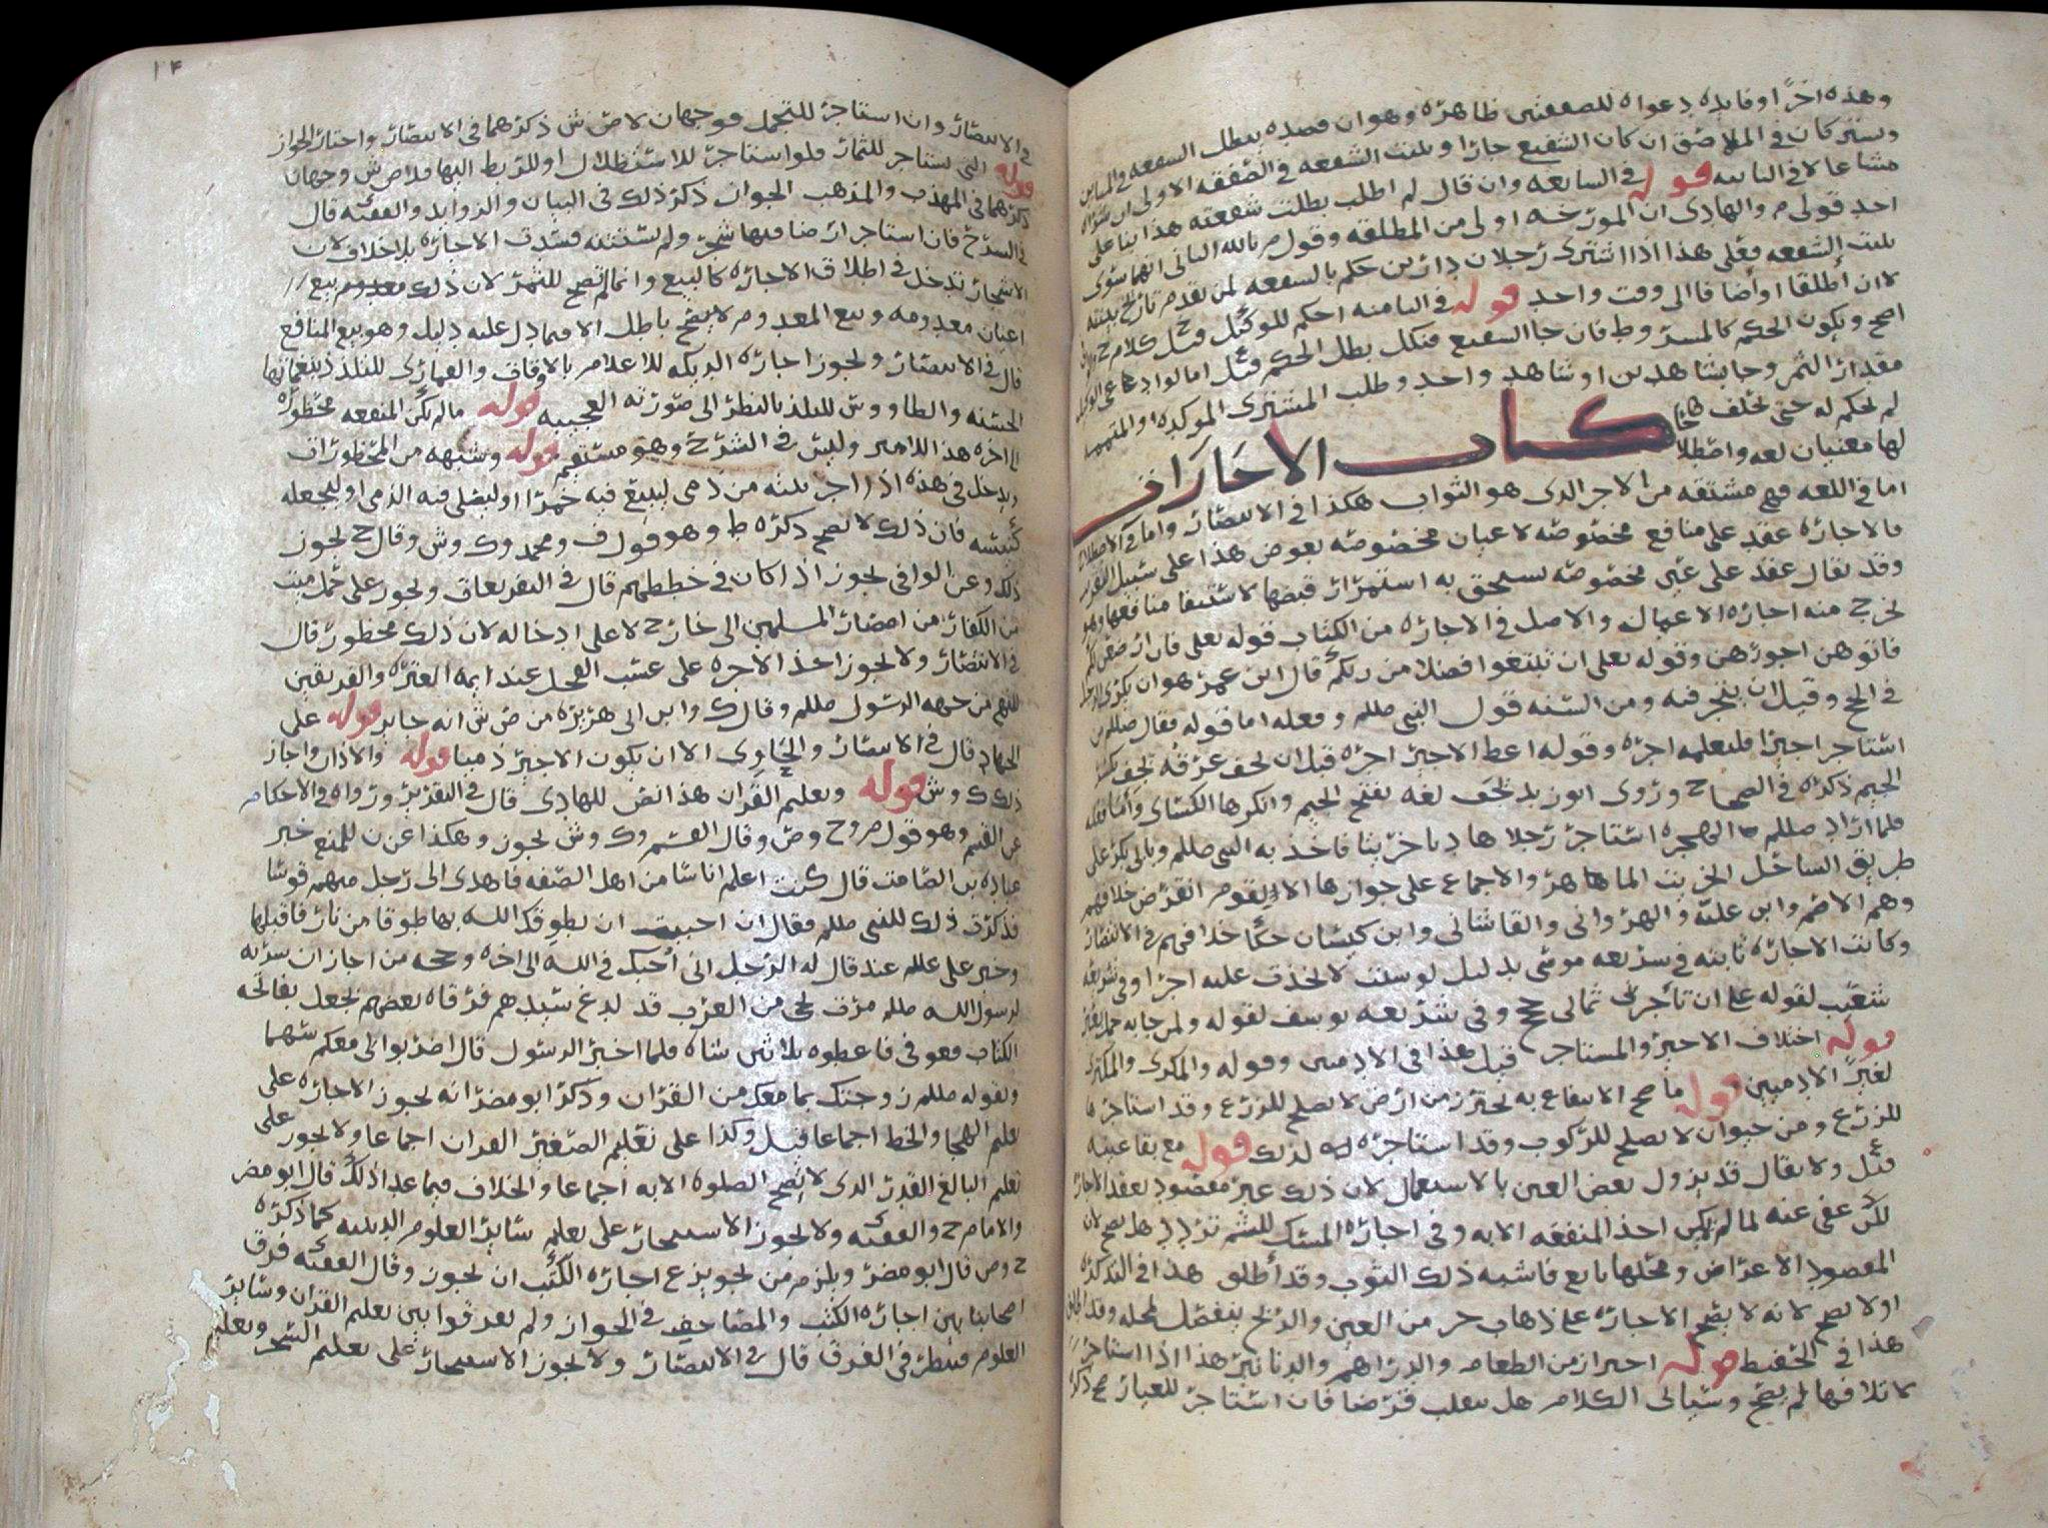 وهذه اخرًا وفايده دعواه للصفقتين ظاهره وهو ان قصده يبطل الشفعه في
ويشتركان في الملاصق ان كان الشفيع جارا وثبتت الشفعه في الصفقه الاولى
مشاعا لا في الثانيه قوله في السابعه وان قال لم اطلب بطلت شفعته هذا بنا على
احد قولي م والهادي ان المورخه اولى من المطلقه وقول م بالله الثاني انهما سوى
ثبتت الشفعه فعلى هذا اذا اشترى رجلان دارين حكم بالشفعه لمن تقدم تاريخ بينته
لا ان اطلقا او اضافا الى وقت واحد قوله في الثامنه احكم للموكل قيل كلام ح
اصح ويكون الحكم كالمشروط فان جا الشفيع فنكل بطل الحكم قيل اما لو ادعا على الوكيل
مقدار الثمن وجا بشاهدين او شاهد واحد وطلب المشتري الموكده او المتممه
لم يحكم له حتى يحلف
كتاب الاجارات
لها معنيان لغه واصطلاحا
اما في اللغه فهي مشتقه من الاجر الذي هو الثواب هكذا في الانتصار واما في الاصطلاح
فالاجاره عقد على منافع مخصوصه لاعيان مخصوصه بعوض هذا على سبيل التقريب
وقد يقال عقد على عين مخصوصه يستحق به استمرار قبضها لاستيفا منافعها وهو
يخرج منه اجاره الاعمال والاصل في الاجاره من الكتاب قوله تعلى فان ارضعن لكم
فاتوهن اجورهن وقوله تعلى ان تبتغوا فضلا من ربكم قال ابن عمر هو ان يكري
في الحج وقيل ان يتجر فيه ومن السنه قول النبي صللم وفعله اما قوله فقال صللم من
استاجر اجيرا فليعلمه اجره وقوله اعط الاجير اجره قبل ان يجف عرقه يجف بكسر
الجيم ذكره في الصحاح وروى ابو زيد يجَف لغه بفتح الجيم وانكرها الكسائي واما فعله
فلما اراد صللم الهجره استاجر رجلا هاديا خريتا فاخذ به النبي صللم وبابي بكر على
طريق الساحل الخريت الماهر والاجماع على جوازها الا لقوم انقرض خلافهم
وهم الاصم وابن عليه والنهرواني والقاشاني وابن كيسان حكا خلافهم في الانتصار
وكانت الاجاره ثابته في شريعه موسى بدليل لو شئت لاتخذت عليه اجرا وفي شريعه
شعيب لقوله على ان تاجرني ثماني حجج وفي شريعه يوسف لقوله ولمن جا به حمل بعير
قوله اختلاف الاجير والمستاجر قيل هذا في الادميين وقوله والمكري والمكتري
لغير الادميين قوله ما صح الانتفاع به يحترز من ارض لا تصلح للزرع وقد استاجرها
للزرع ومن حيوان لا يصلح للركوب وقد استاجره له لذلك قوله مع بقا عينه
قيل ولا يقال قد يزول بعض العين بالاستعمال لان ذلك غير مقصود بعقد الاجاره
لكن عفي عنه لما لم يكن اخذ المنفعه الا به وفي اجاره المسك للشم تردد هل يصح لان
المقصود الاعراض ومحلها باق فاشبه ذلك الثوب وقد اطلق هذا في التذكره
او لا يصح لانه لا يصح الاجاره على ذهاب جزء من العين والريح ينفصل لمحله وقد اطلق
هذا في الحفيظ قوله احتراز من الطعام والدراهم والدنانير هذا اذا استاجر
لاتلافها لم يصح وسياتي الكلام هل ينقلب قرضا فان استاجر للعيار صح ذكره
١٤
في الانتصار وان استاجر للتجمل فوجهان لاص ش ذكرهما في الانتصار واختار الجواز
قوله التي تستاجر للثمار فلو استاجر للاستظلال او للربط اليها فلاص ش وجهان
ذكرهما في المهذب والمذهب الجواز ذكر ذلك في البيان والزوايد والفقيه قال
في الشرح فان استاجر ارضا فيها شجر ولم يستثنه فسدت الاجاره بلا خلاف لان
الاشجار تدخل في اطلاق الاجاره كالبيع وانما لم تصح للثمر لان ذلك بيع
اعيان معدومه وبيع المعدوم لا يصح باطل الا فيما دل عليه دليل وهو بيع المنافع
قال في الانتصار ويجوز اجاره الديكه للاعلام بالاوقات والقماري للتلذذ بنغماتها
الحسنه والطاووس للتلذ بالنظر الى صورته العجيبه قوله ما لم يكن المنفعه محظوره
الى اخره هذا للامير وليس في الشرح وهو مستقيم قوله وشبهه من المحظورات
ويدخل في هذه اذا اجر بيته من ذمي ليبيع فيه خمرا او ليصلي فيه الذمي او ليجعله
كنيسه فان ذلك لا يصح ذكره ط وهو قول ف ومحمد وك وش وقال ح يجوز
ذلك وعن الوافي يجوز اذا كان في خططهم قال في التفريعات ويجوز على حمل ميت
من الكفار من امصار المسلمين الى خارج لا على ادخاله لان ذلك محظور قال
في الانتصار ولا يجوز اخذ الاجره على عسب الفحل عند ايمه العتره والفريقين
للنهي من جهه الرسول صللم وقال ك وابن ابي هريره من ص ش انه جايز قوله على
الجهاد قال في الانتصار والحاوي الا ان يكون الاجير ذميا قوله والاذان واجاز
ذلك ك وش قوله وتعليم القران هذا نص للهادي قال في التقرير ورواه في الاحكام
عن القسم وهو قول م وح وص وقال القسم وك وش يجوز وهكذا عن ن للمنع خبر
عباده بن الصامت قال كنت اعلم اناسا من اهل الصفه فاهدى الي رجل منهم قوسا
فذكرت ذلك للنبي صللم فقال ان احببت ان يطوقك الله بها طوقا من نار فاقبلها
وخبر علي عللم عند قال له الرجل اني احبك في الله الى اخره وحجه من اجاز ان سريه
لرسول الله صللم مرت بحي من العرب قد لدغ سيدهم فرقاه بعضهم بجعل بفاتحه
الكتاب فعوفي فاعطوه ثلاثين شاه فلما اخبر الرسول قال اضربوا لي معكم سهما
ولقوله صللم زوجتك بما معك من القران وذكر ابو مضر انه يجوز الاجاره على
تعليم الهجا والخط اجماعا قيل وكذا على تعليم الصغير القران اجماعا ولا يجوز على
تعليم البالغ القدر الذي لا تصح الصلوه الا به اجماعا والخلاف فيما عدا ذلك قال ابو مضر
والامام ح والفقيه ولا يجوز الاستيجار على تعليم ساير العلوم الدينيه كما ذكره
ح وص قال ابو مضر ويلزم من تجويز ع اجاره الكتب ان يجوز وقال الفقيه فرق
اصحابنا بين اجاره الكتب والمصاحف في الجواز ولم يفرقوا بين تعليم القران وساير
العلوم فينظر في الفرق قال في الانتصار ولا يجوز الاستيجار على تعليم السحر وتعلم